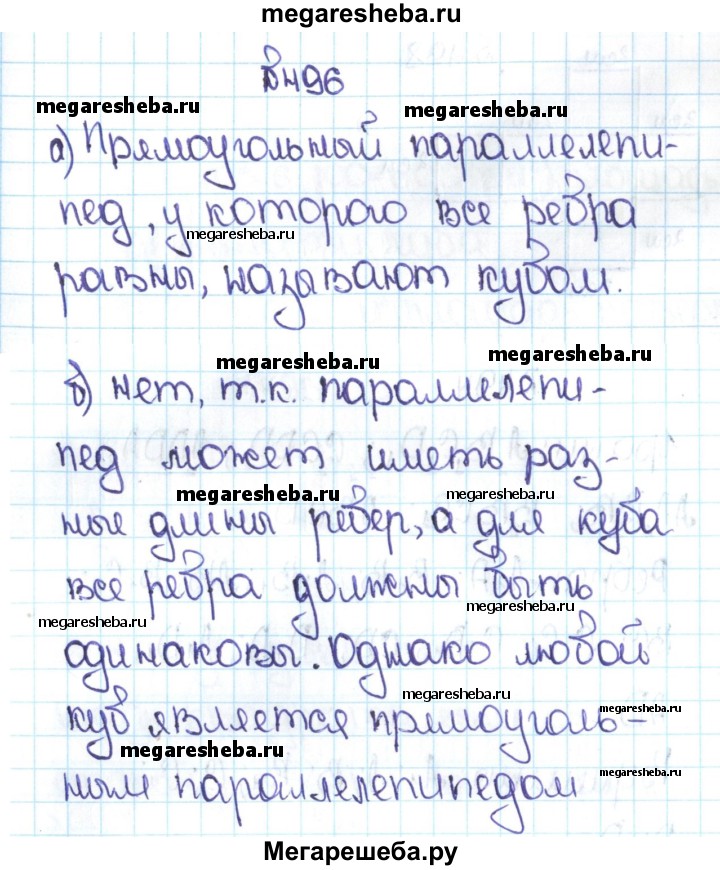 megaresheba.ru
№496
megaresheba.ru
megaresheba.ru
а) Прямоугольный параллелепи-
пед, у которого все ребра
megaresheba.ru
равны, называют кубом.
megaresheba.ru
megaresheba.ru
б) нет, т.к. параллелепи-
пед может иметь раз-
megaresheba.ru
megaresheba.ru
ные длины ребер, а для куба
все ребра должны быть
megaresheba.ru
megaresheba.ru
одинаковы. Однако любой
megaresheba.ru
megaresheba.ru
куб является прямоуголь-
megaresheba.ru
megaresheba.ru
ным параллелепипедом
Мегарешеба.ру